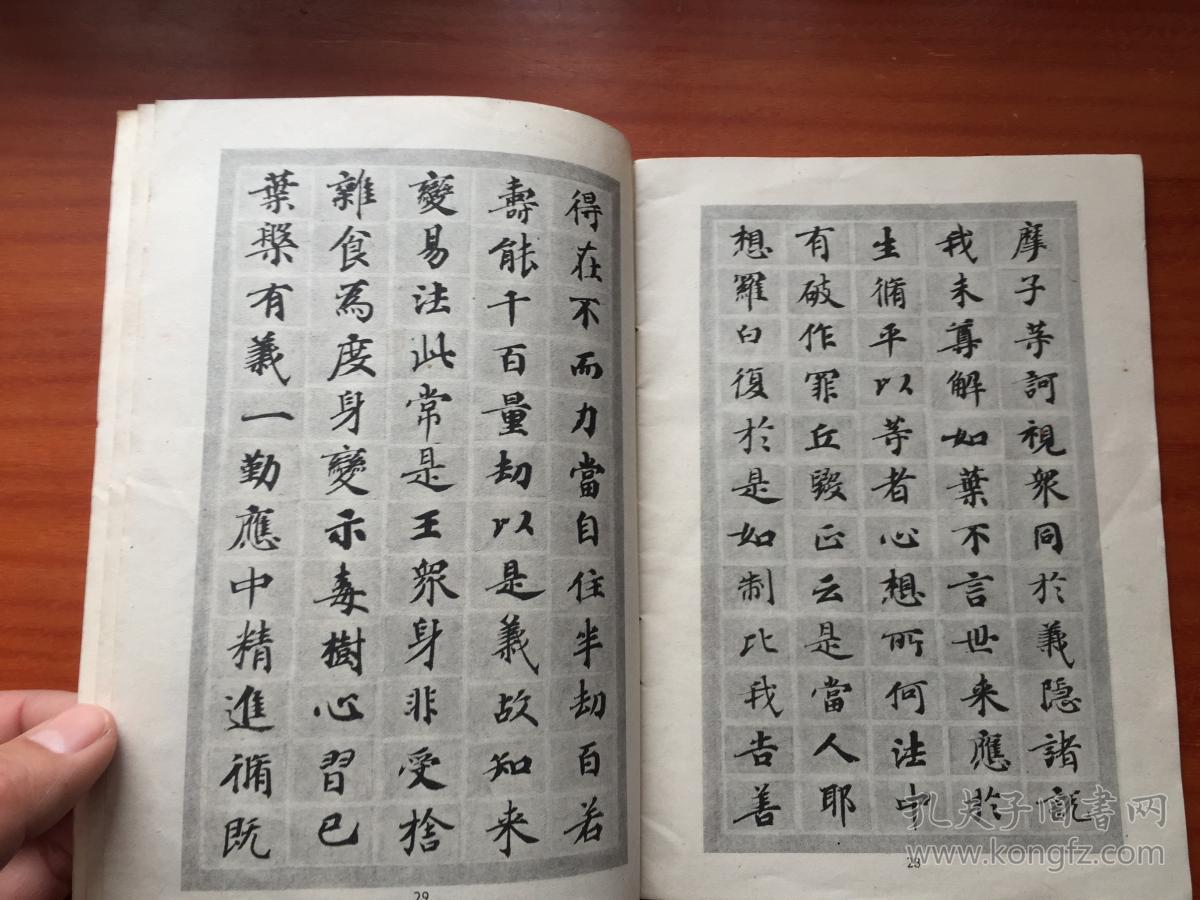 摩子等訶視衆同於義隱諸說
我未尊解如葉不言世来應於
生脩平以等者心想所何法中
有破作罪丘毀正云是當人耶
想羅白復於是如制比我告善
28
得在不而力當自住半劫百若
壽能千百量劫以是義故知来
變易法此常是王衆身非受捨
雜食為度身變示毒樹心習已
葉槃有義一勤應中精進脩既
29
孔夫子舊書网
www.kongfz.com